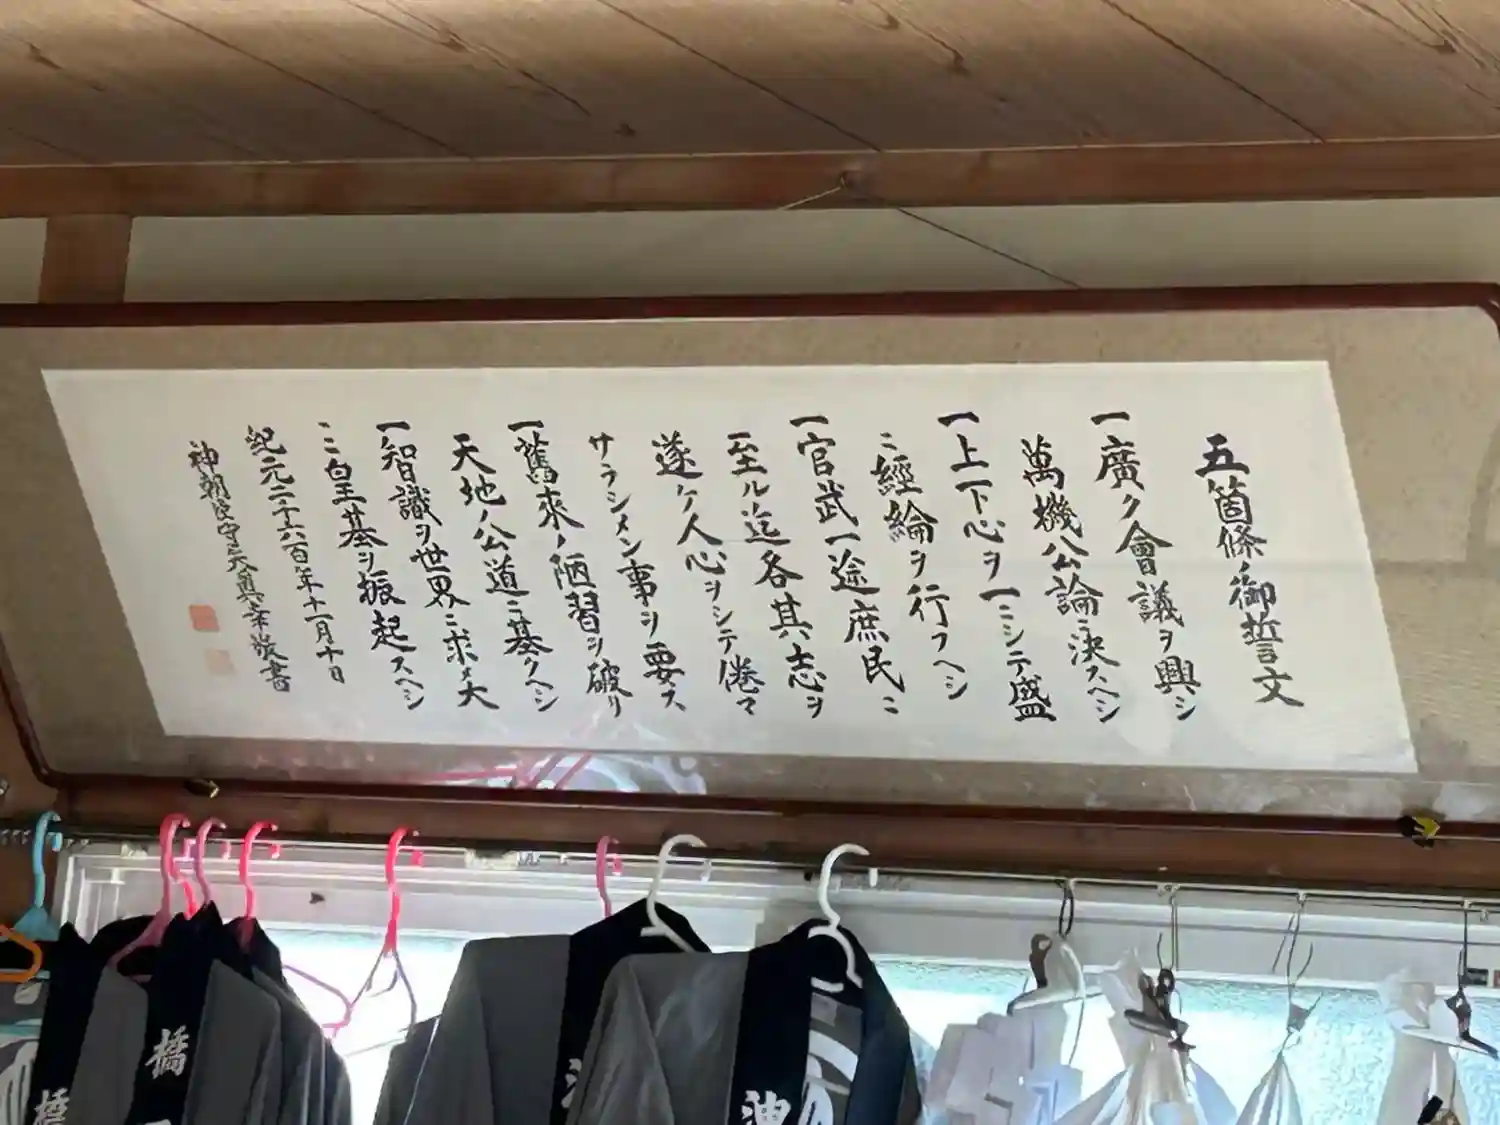 五箇條ノ御誓文
一廣ク會議ヲ興シ
萬機公論ニ決スヘシ
一上下心ヲ一ニシテ盛
ニ經綸ヲ行フヘシ
一官武一途庶民ニ
至ル迄各其志ヲ
遂ケ人心ヲシテ倦マ
サラシメン事ヲ要ス
一舊來ノ陋習ヲ破リ
天地ノ公道ニ基クヘシ
一智識ヲ世界ニ求メ大
ニ皇基ヲ振起スヘシ
紀元二千六百年十一月十日
神朝 守 眞幸敬書
橋
橋